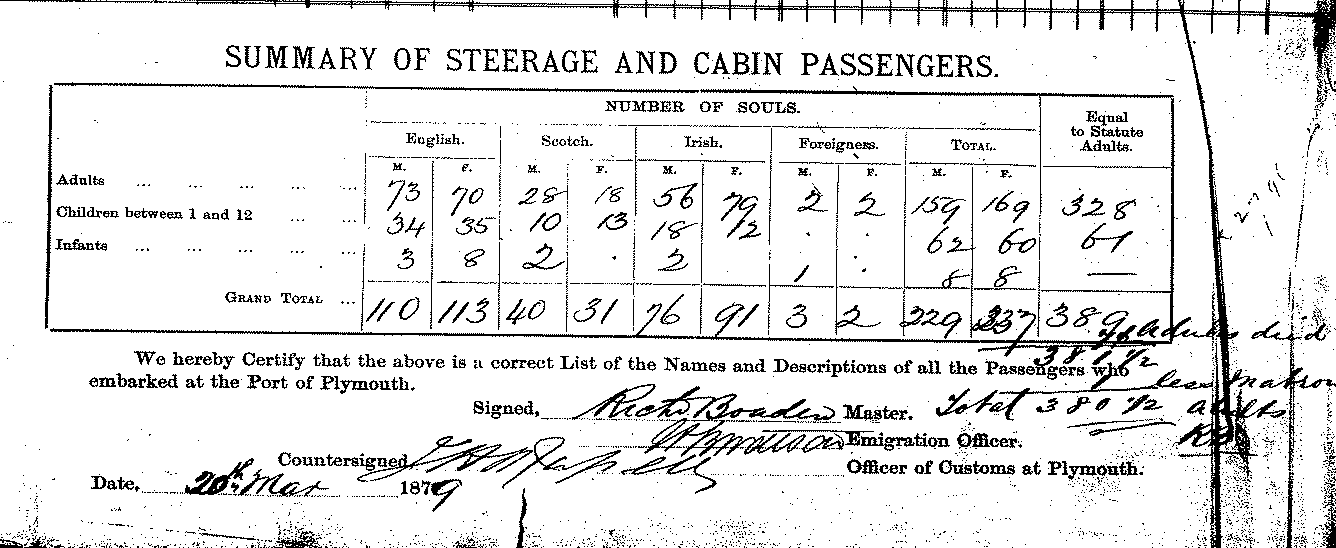 SUMMARY OF STEERAGE AND CABIN PASSENGERS.
NUMBER OF SOULS.
Equal to Statute Adults.
English. Scotch. Irish. Foreigners. TOTAL.
M. F. M. F. M. F. M. F. M. F.
Adults ... ... ... ... ... 73 70 28 18 56 79 2 2 159 169 328
Children between 1 and 12 ... ... 34 35 10 13 18 12 . . 62 60 61
Infants ... ... ... ... ... 3 8 2 . 2 1 . 8 8 —
GRAND TOTAL ... 110 113 40 31 76 91 3 2 229 237 389
Adults died
381 1/2
We hereby Certify that the above is a correct List of the Names and Descriptions of all the Passengers who
less Matron
embarked at the Port of Plymouth.
Signed, Richd Boaden Master. Total 380 1/2 adults
Emigration Officer.
Countersigned
Officer of Customs at Plymouth.
Date, 20th Mar 1879